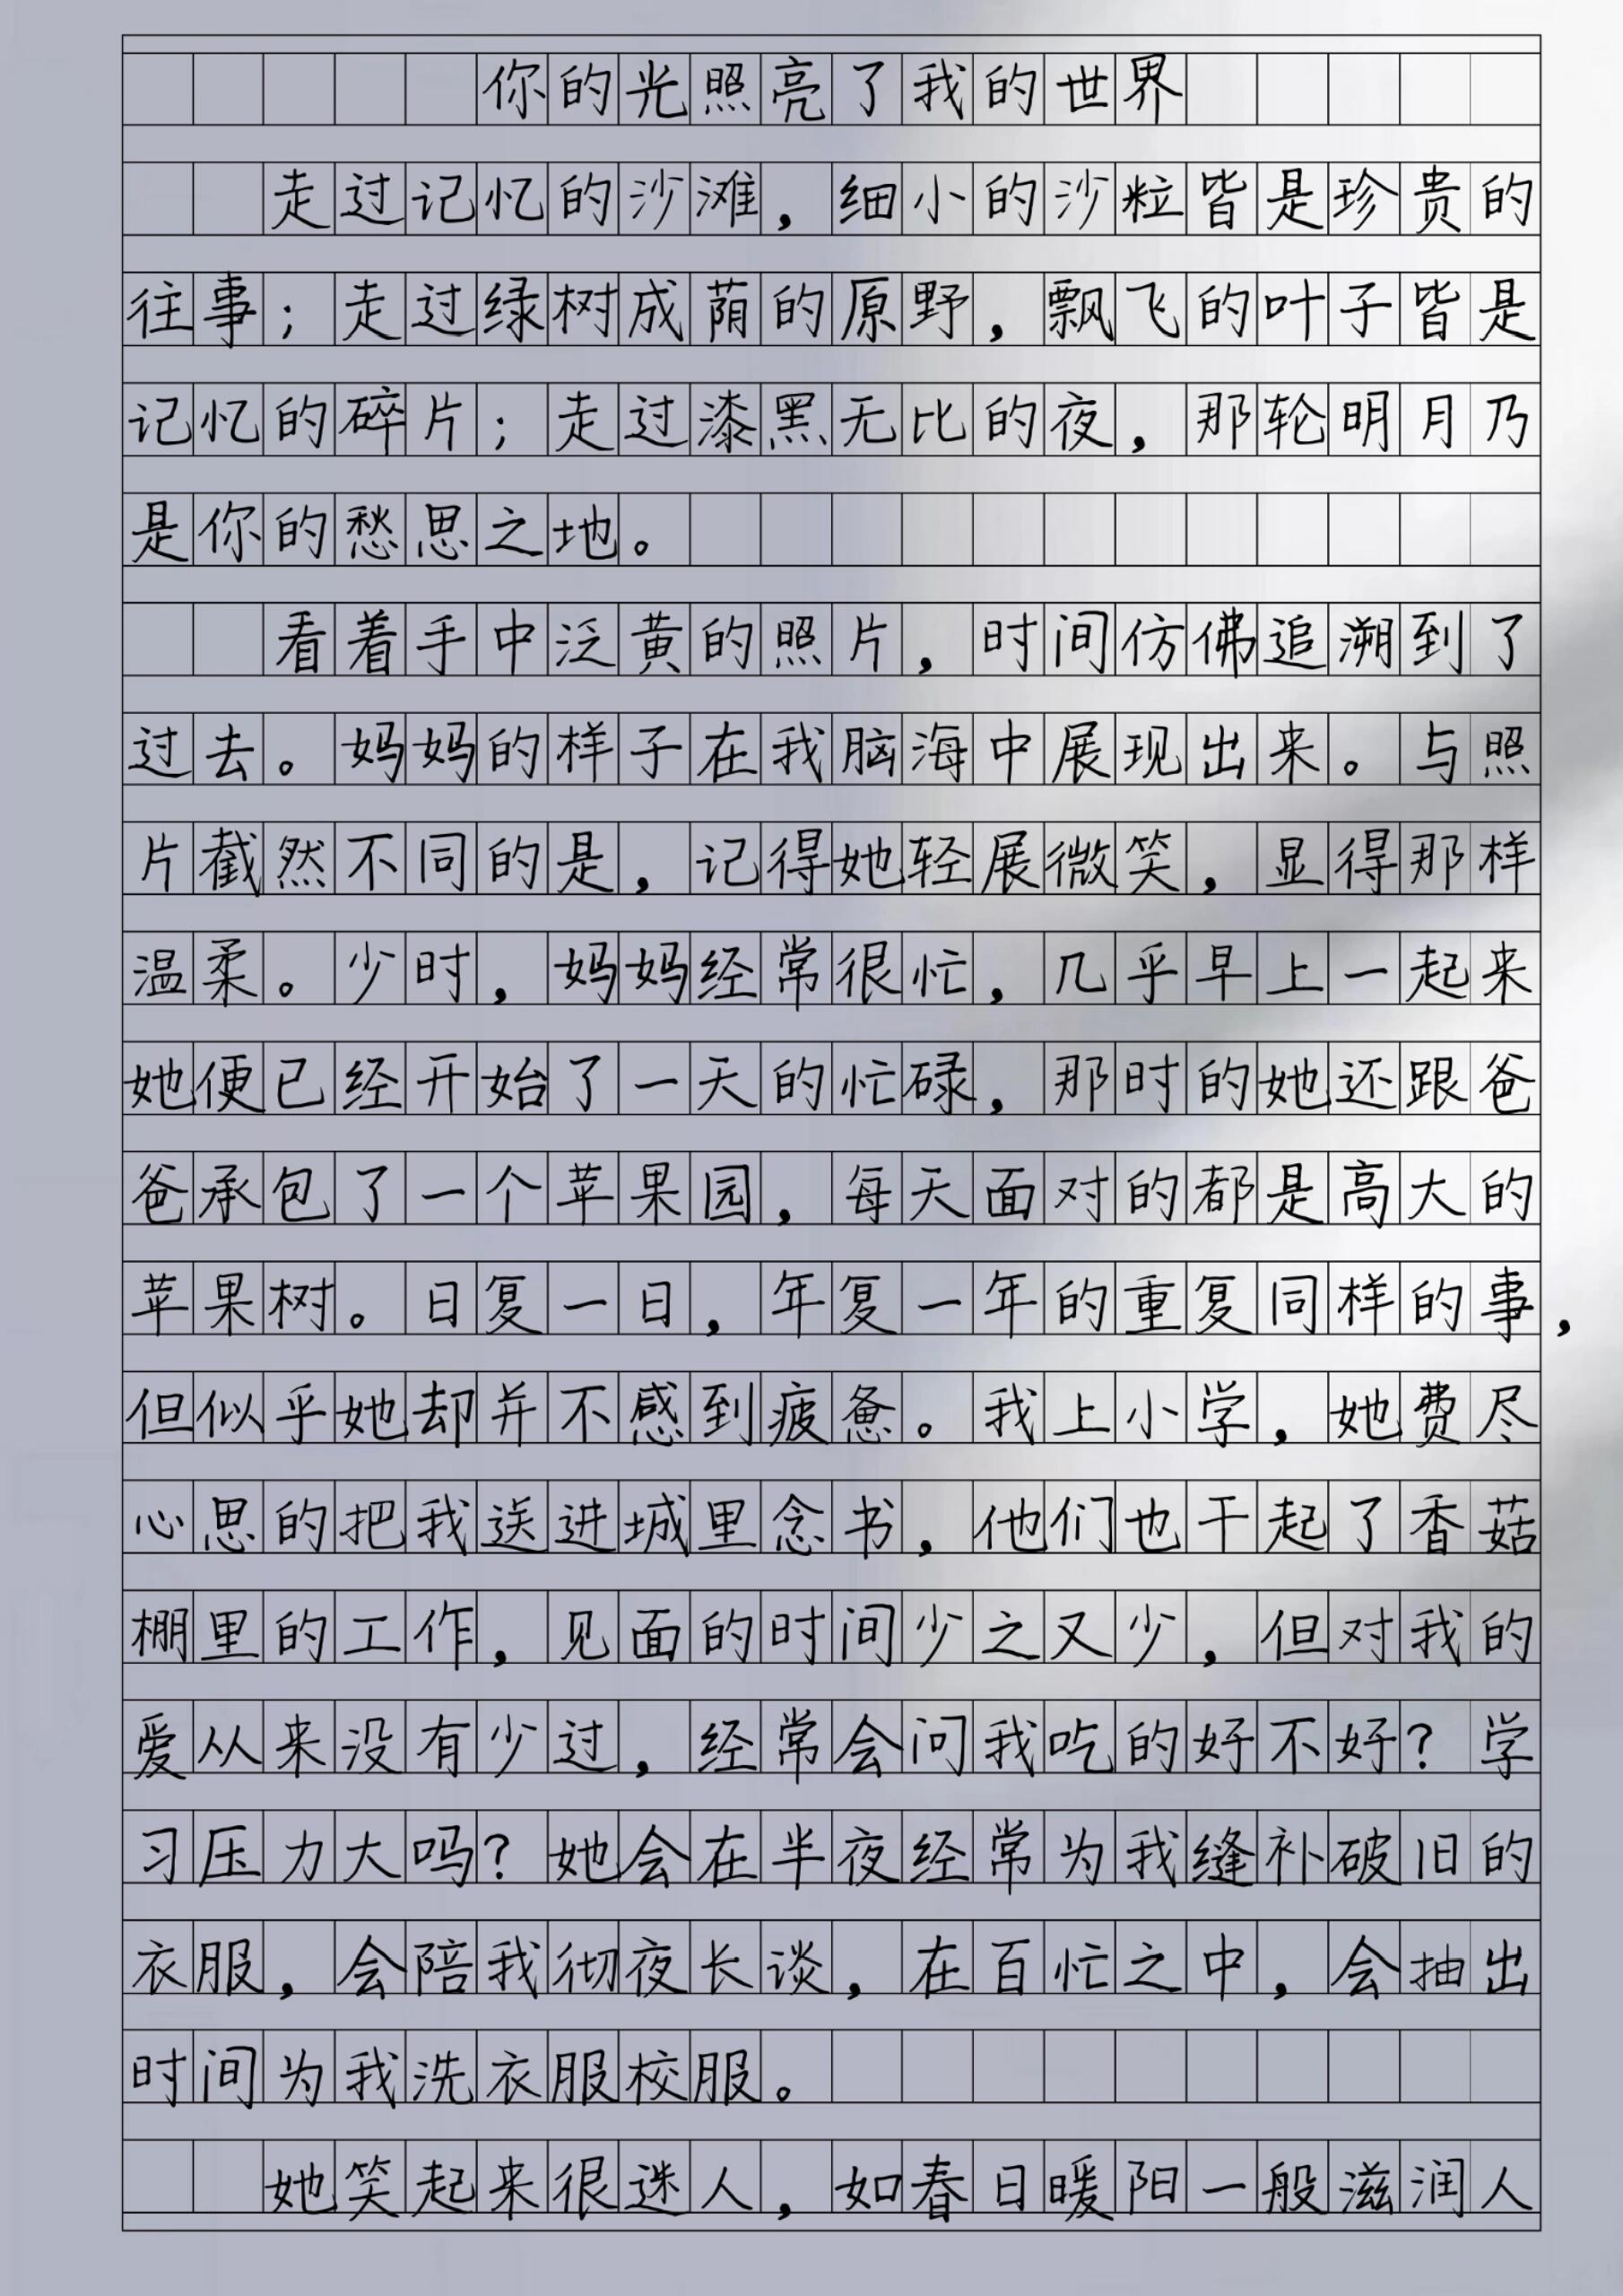 你的光照亮了我的世界
走过记忆的沙滩，细小的沙粒皆是珍贵的
往事；走过绿树成荫的原野，飘飞的叶子皆是
记忆的碎片；走过漆黑无比的夜，那轮明月乃
是你的愁思之地。
看着手中泛黄的照片，时间仿佛追溯到了
过去。妈妈的样子在我脑海中展现出来。与照
片截然不同的是，记得她轻展微笑，显得那样
温柔。少时，妈妈经常很忙，几乎早上一起来
她便已经开始了一天的忙碌，那时的她还跟爸
爸承包了一个苹果园，每天面对的都是高大的
苹果树。日复一日，年复一年的重复同样的事，
但似乎她却并不感到疲惫。我上小学，她费尽
心思的把我送进城里念书，他们也干起了香菇
棚里的工作，见面的时间少之又少，但对我的
爱从来没有少过，经常会问我吃的好不好？学
习压力大吗？她会在半夜经常为我缝补破旧的
衣服，会陪我彻夜长谈，在百忙之中，会抽出
时间为我洗衣服校服。
她笑起来很迷人，如春日暖阳一般滋润人